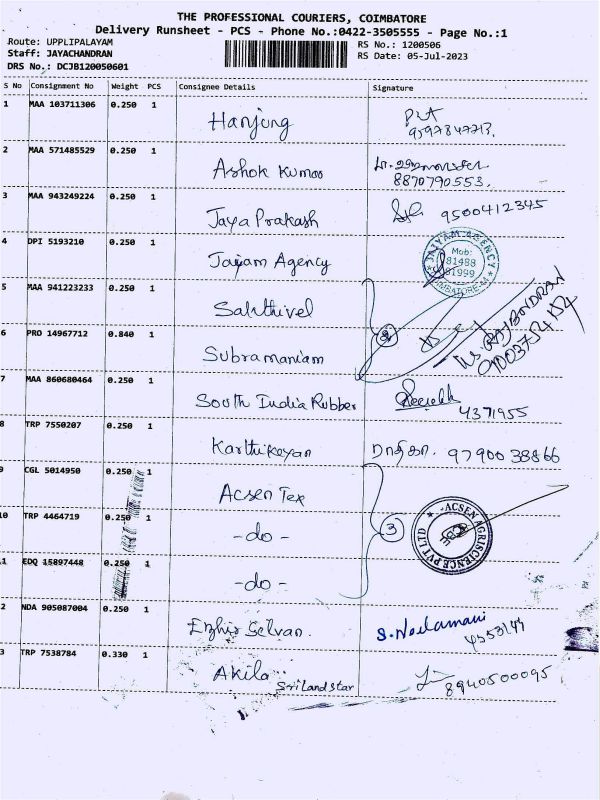 THE PROFESSIONAL COURIERS, COIMBATORE
Delivery Runsheet - PCS - Phone No.:0422-3505555 - Page No.:1
Route: UPPLIPALAYAM
Staff: JAYACHANDRAN
DRS No.: DCJB120050601
RS No.: 1200506
RS Date: 05-Jul-2023
S No Consignment No Weight PCS Consignee Details Signature
1 MAA 103711306 0.250 1 Hanjung
2 MAA 571485529 0.250 1 Ashok Kumar
8870790553.
3 MAA 943249224 0.250 1 Jaya Prakash 9500412345
4 DPI 5193210 0.250 1 Jaiyam Agency
JAIYAM AGENCY
Mob:
81488
81999
COIMBATORE
5 MAA 941223233 0.250 1 Sakthivel
6 PRO 14967712 0.840 1 Subramaniam
2
7 MAA 860680464 0.250 1 South India Rubber
4371955
8 TRP 7550207 0.250 1 Karthikeyan 9790038866
9 CGL 5014950 0.250 1 Acsen Tex
10 TRP 4464719 0.250 1 -do-
3
ACSEN AGRISCIENCE PVT LTD
11 EDQ 15897448 0.250 1 -do-
2 NDA 905087004 0.250 1 Ezhil Selvan. S. Neelamani
3 TRP 7538784 0.330 1 Akila Sri Landstar 8940500095